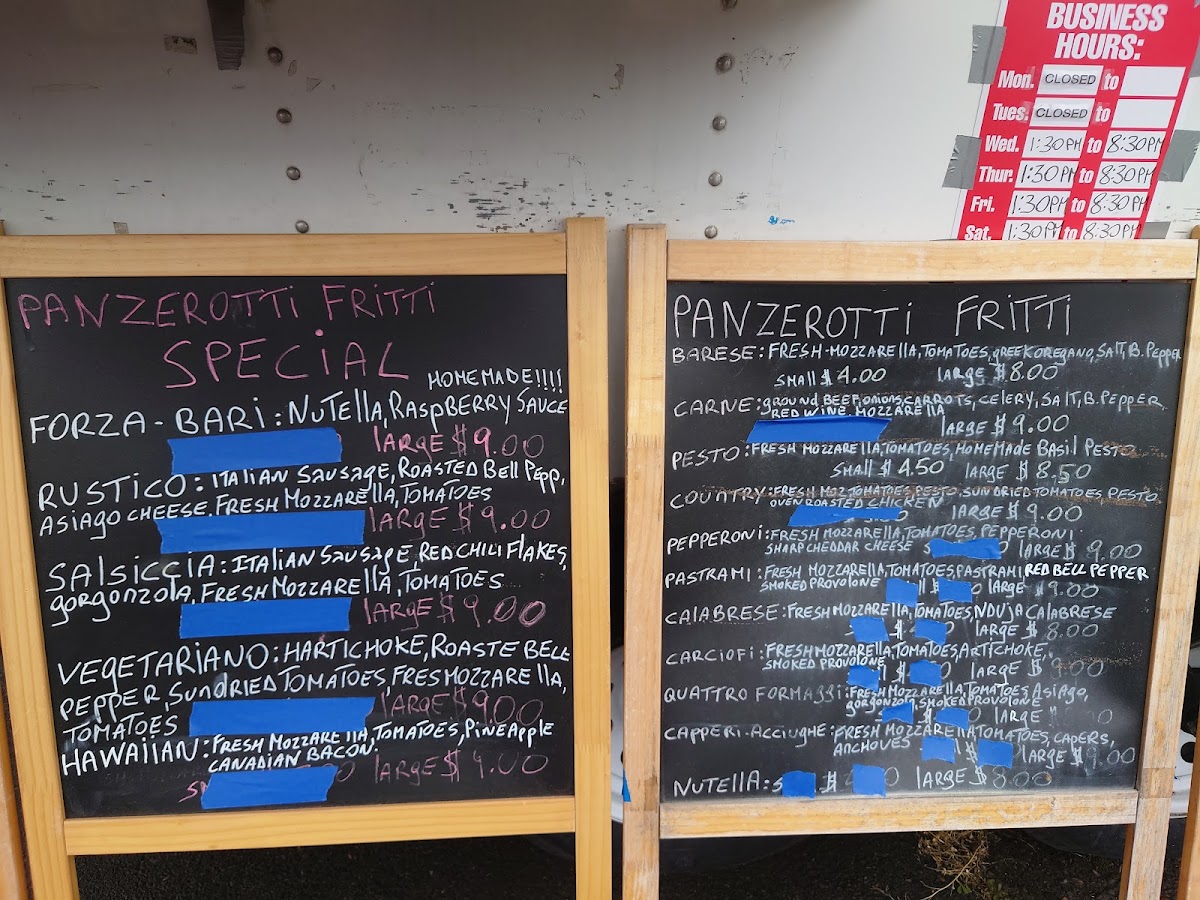 BUSINESS
HOURS:
Mon. CLOSED to
Tues. CLOSED to
Wed. 1:30PM to 8:30PM
Thur. 1:30PM to 8:30PM
Fri. 1:30PM to 8:30PM
Sat. 1:30PM to 8:30PM
PANZEROTTi FRiTTi
SPECiAL
HOMEMADE!!!!
FORZA-BARi: NuTELLA, RASpBERRY SAUCE
LARGE $9.00
RUSTICO: iTALiAN SAUSAGE, ROASTED BELL PEPP,
ASIAGO CHEESE, FRESH MOZZARELLA, TOMATOES
LARGE $9.00
SALSiCCiA: ITALiAN SAUSAGE, RED CHILI FLAKES,
GORGONZOLA, FRESH MOZZARELLA, TOMATOES
LARGE $9.00
VEGETARIANO: HARTICHOKE, ROASTE BELL
PEPPER, SUNDRiED TOMATOES, FRES MOZZARELLA,
TOMATOES
LARGE $9.00
HAWAiiAN: FRESH MOZZARELLA, TOMATOES, PiNEAPPLE
CANADIAN BACON.
LARGE $9.00
PANZEROTTi FRiTTi
BARESE: FRESH-MOZZARELLA, TOMATOES, GREEK OREGANO, SALT, B. PEPPER
SMALL $4.00 LARGE $8.00
CARNE: GROUND BEEF, ONIONS, CARROTS, CELERY, SALT, B. PEPPER,
RED WINE, MOZZARELLA
LARGE $9.00
PESTO: FRESH MOZZARELLA, TOMATOES, HOMEMADE BASIL PESTO
SMALL $4.50 LARGE $8.50
COUNTRY: FRESH MOZ, TOMATOES, PESTO, SUNDRIED TOMATOES, PESTO.
OVEN ROASTED CHICKEN
LARGE $9.00
PEPPERONi: FRESH MOZZARELLA, TOMATOES, PEPPERONi
SHARP CHEDDAR CHEESE LARGE $9.00
PASTRAMi: FRESH MOZZARELLA, TOMATOES, PASTRAMi, RED BELL PEPPER
SMOKED PROVOLONE LARGE $9.00
CALABRESE: FRESH MOZZARELLA, TOMATOES, NDUJA CALABRESE
$ LARGE $8.00
CARCiOFi: FRESH MOZZARELLA, TOMATOES, ARTICHOKE,
SMOKED PROVOLONE
LARGE $9.00
QUATTRO FORMAGGi: FRESH MOZZARELLA, TOMATOES, ASIAGO,
GORGONZOLA, SMOKED PROVOLONE
$ LARGE $
CAPPERi-ACCiUGHE: FRESH MOZZARELLA, TOMATOES, CAPERS,
ANCHOVES LARGE $9.00
NUTELLA: $ LARGE $8.00